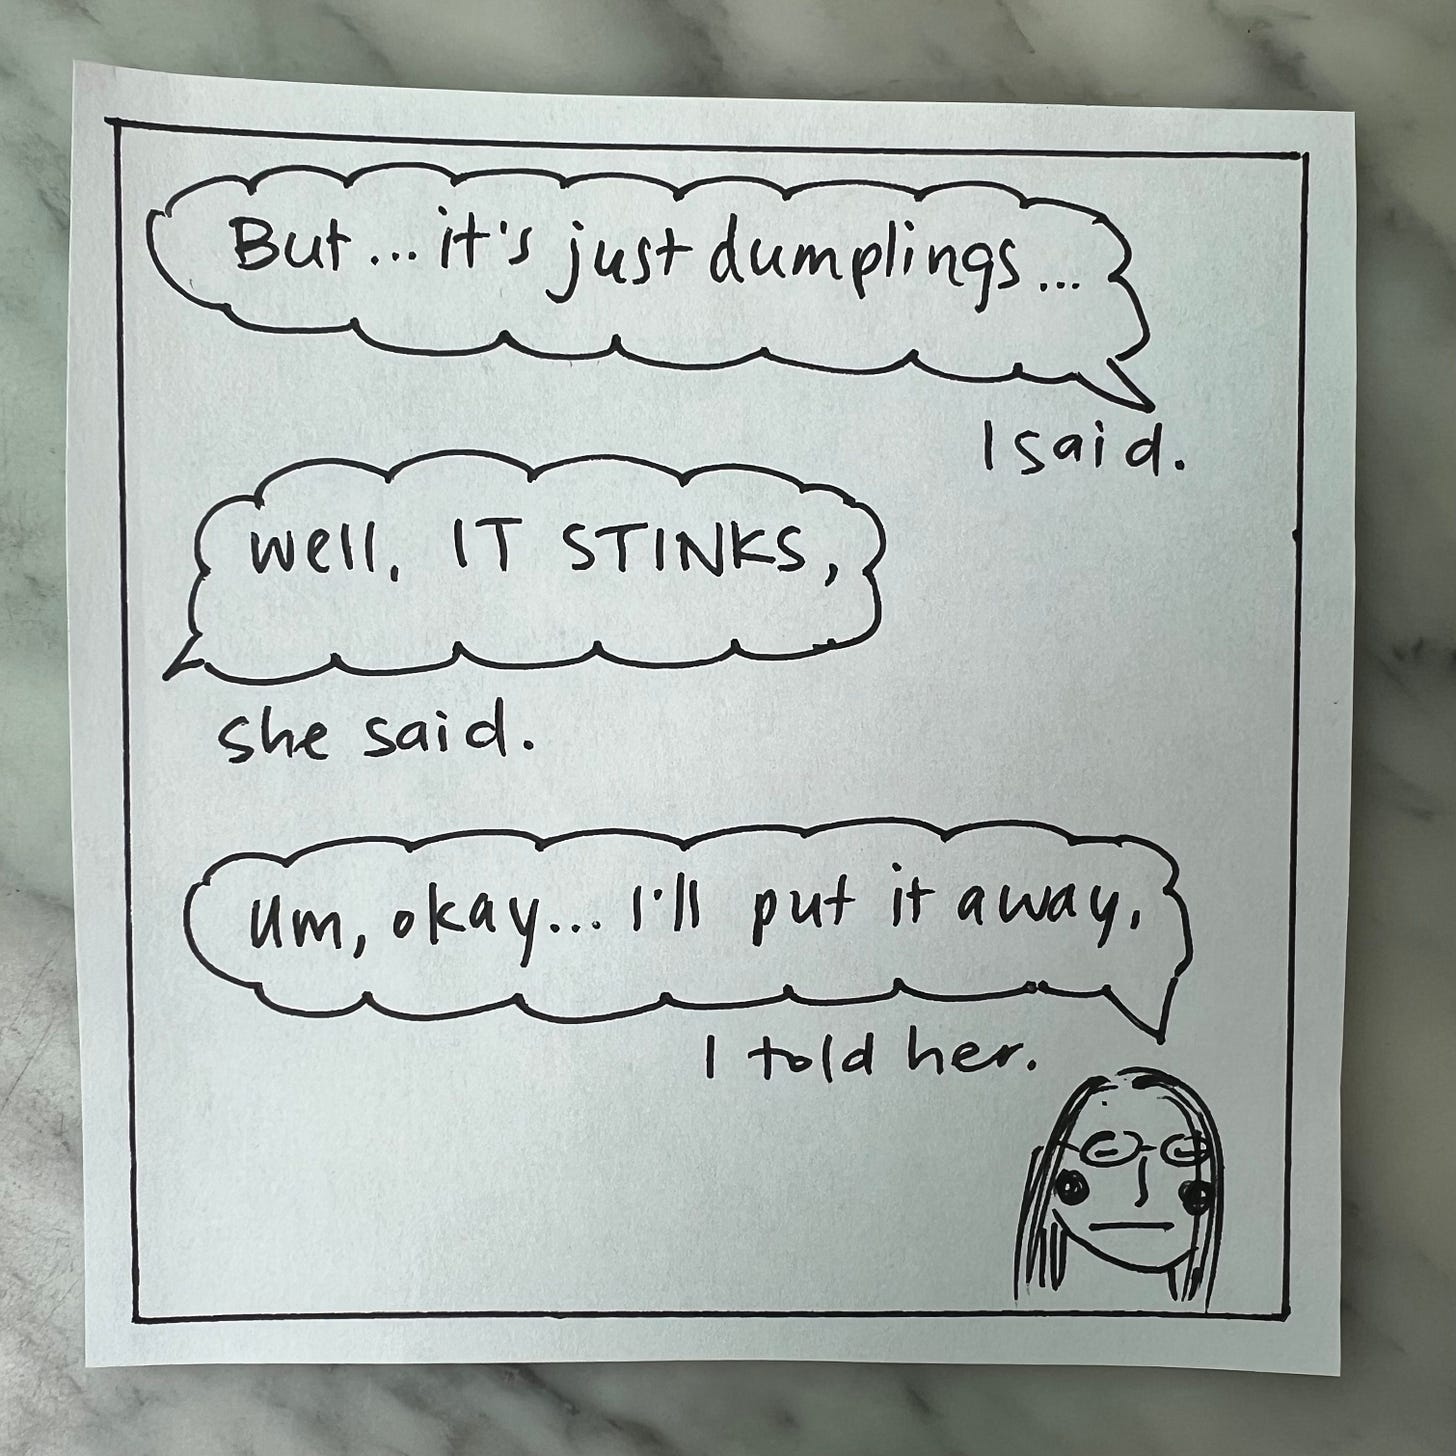 But... it's just dumplings...
I said.
well, IT STINKS,
she said.
um, okay... I'll put it away,
I told her.